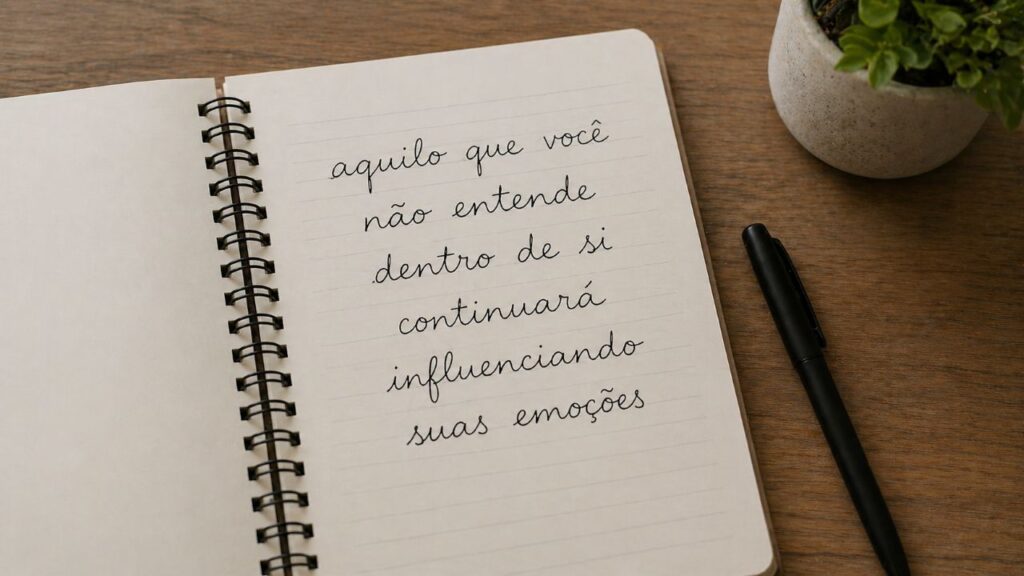 aquilo que você
não entende
dentro de si
continuará
influenciando
suas emoções